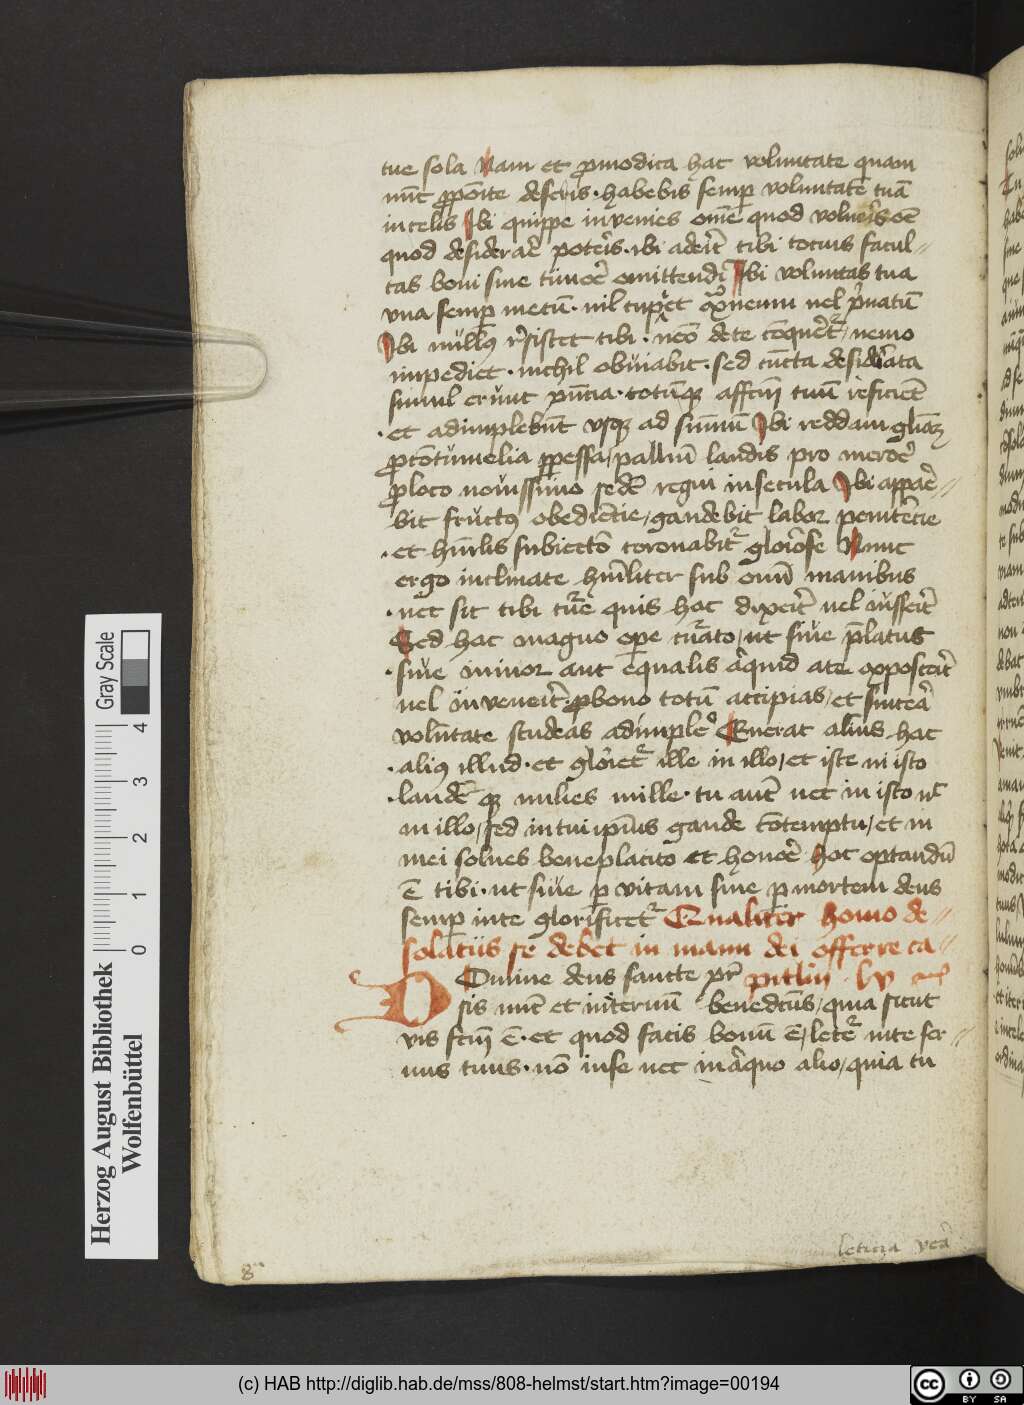 tue sola Nam et pro modica hac voluntate quam
nūc spōnte deseris · habebis semp voluntatē tuā
in celis Ibi quippe invenies omē quod volueris oē
quod desiderare poteris · ibi aderit tibi totius facul=
tas boni sine timore omittendi Ibi voluntas tua
vna semp mecū · nil cupiet extraneum uel privatū
Ibi nullus resistet tibi · nemo de te conqueret / nemo
impediet · nichil obuiabit · sed cūcta desiderata
simul erunt pntia · totūque affectū tuū reficient
· et adimplebūt vsque ad summū Ibi reddam gloriā
pro contumelia perpessa / pallium laudis pro merore
pro loco nouissimo sedē regni in secula Ibi appare=
bit fructus obediētie / gaudebit labor penitētie
· et humilis subiectio coronabitur gloriose Nunc
ergo inclinate humiliter sub omniū manibus
· nec sit tibi cure quis hoc dixerit uel iusserit
Sed hoc magno ope curato / ut siue prelatus
· siue minor aut equalis aliquid a te exposcerit
uel inuenerit · pro bono totū accipias / et sincera
voluntate studeas adimplere Querat alius hoc
· alius illud · et glorietur ille in illo / et iste in isto
· laudetur que milies mille · tu autē nec in isto nec
in illo / sed in tui ipius gaude contemptu / et in
mei solius beneplacito et honore hoc optandū
ē tibi · ut siue p vitam siue p mortem deus
semp in te glorificetur Qualiter homo de=
solatus se debet in manu dei offerre ca=
Domine deus sancte pr pitlm · lv
sis nūc et in eternū benedcūs / quia sicut
vis fcm ē · et quod facis bonū ē / letetur in te ser=
uus tuus · nō in se nec in aliquo alio / quia tu
leticia vera
8
Gray Scale
0 1 2 3 4
Herzog August Bibliothek
Wolfenbüttel
(c) HAB http://diglib.hab.de/mss/808-helmst/start.htm?image=00194
cc BY SA